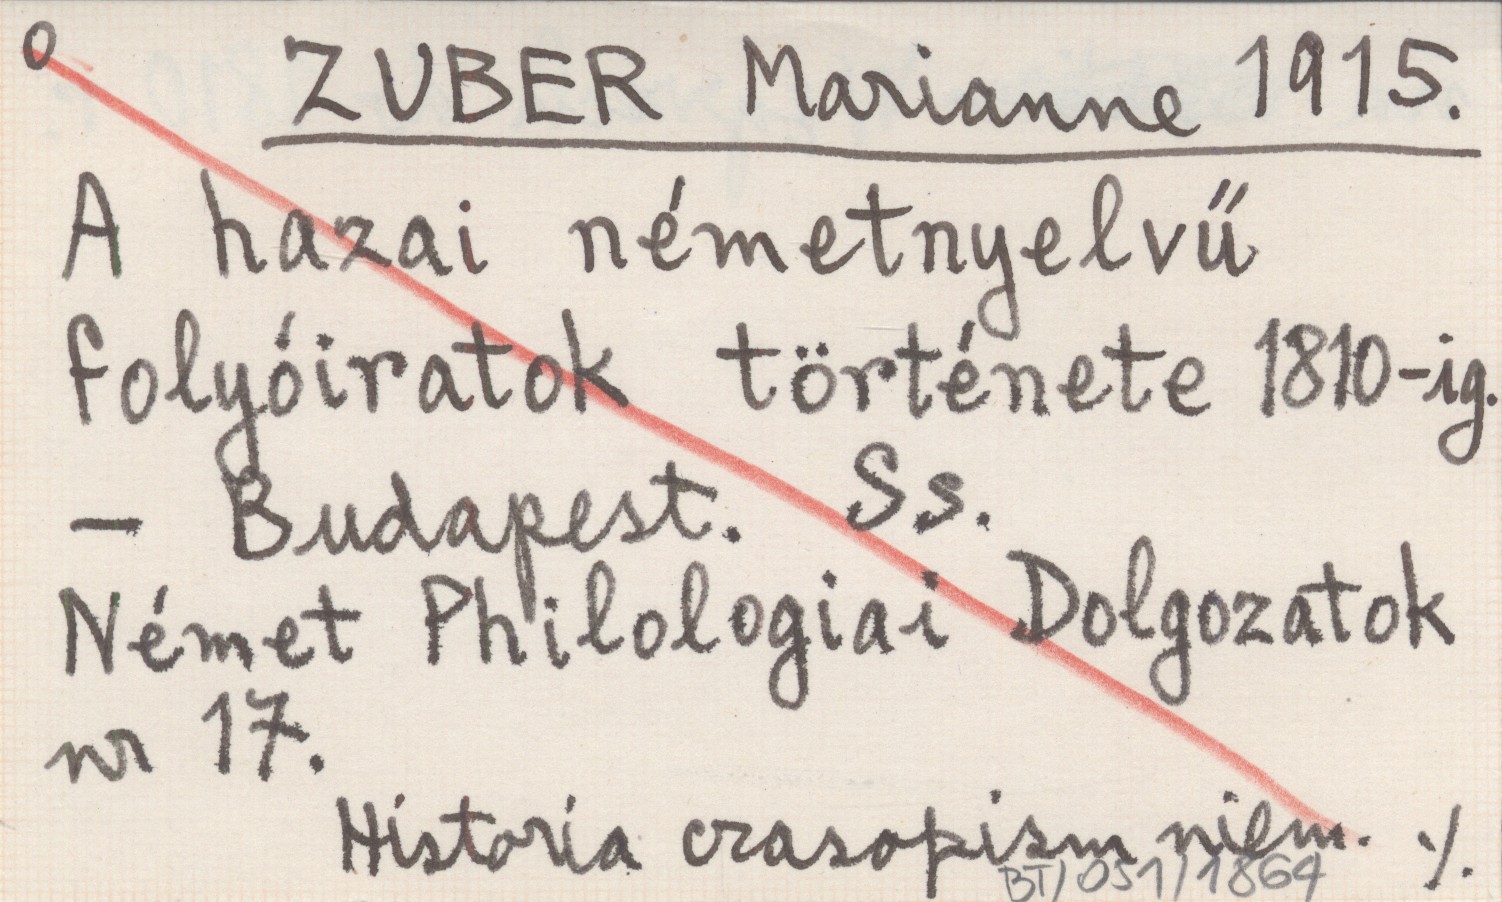 0 ZUBER Marianne 1915.
A hazai németnyelvű
folyóiratok története 1810-ig.
– Budapest. Ss.
Német Philologiai Dolgozatok
nr 17.
Historia czasopism niem. ·/.
BT/051/1864